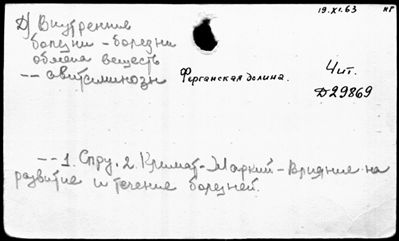 19.XI.63 НГ
Д) Внутренние
болезни - болезни
обмена веществ
-- авитаминозы Ферганская долина. Чит.
Д29869
-- 1. Спру. 2. Климат - Жаркий - Влияние на
развитие и течение болезней.